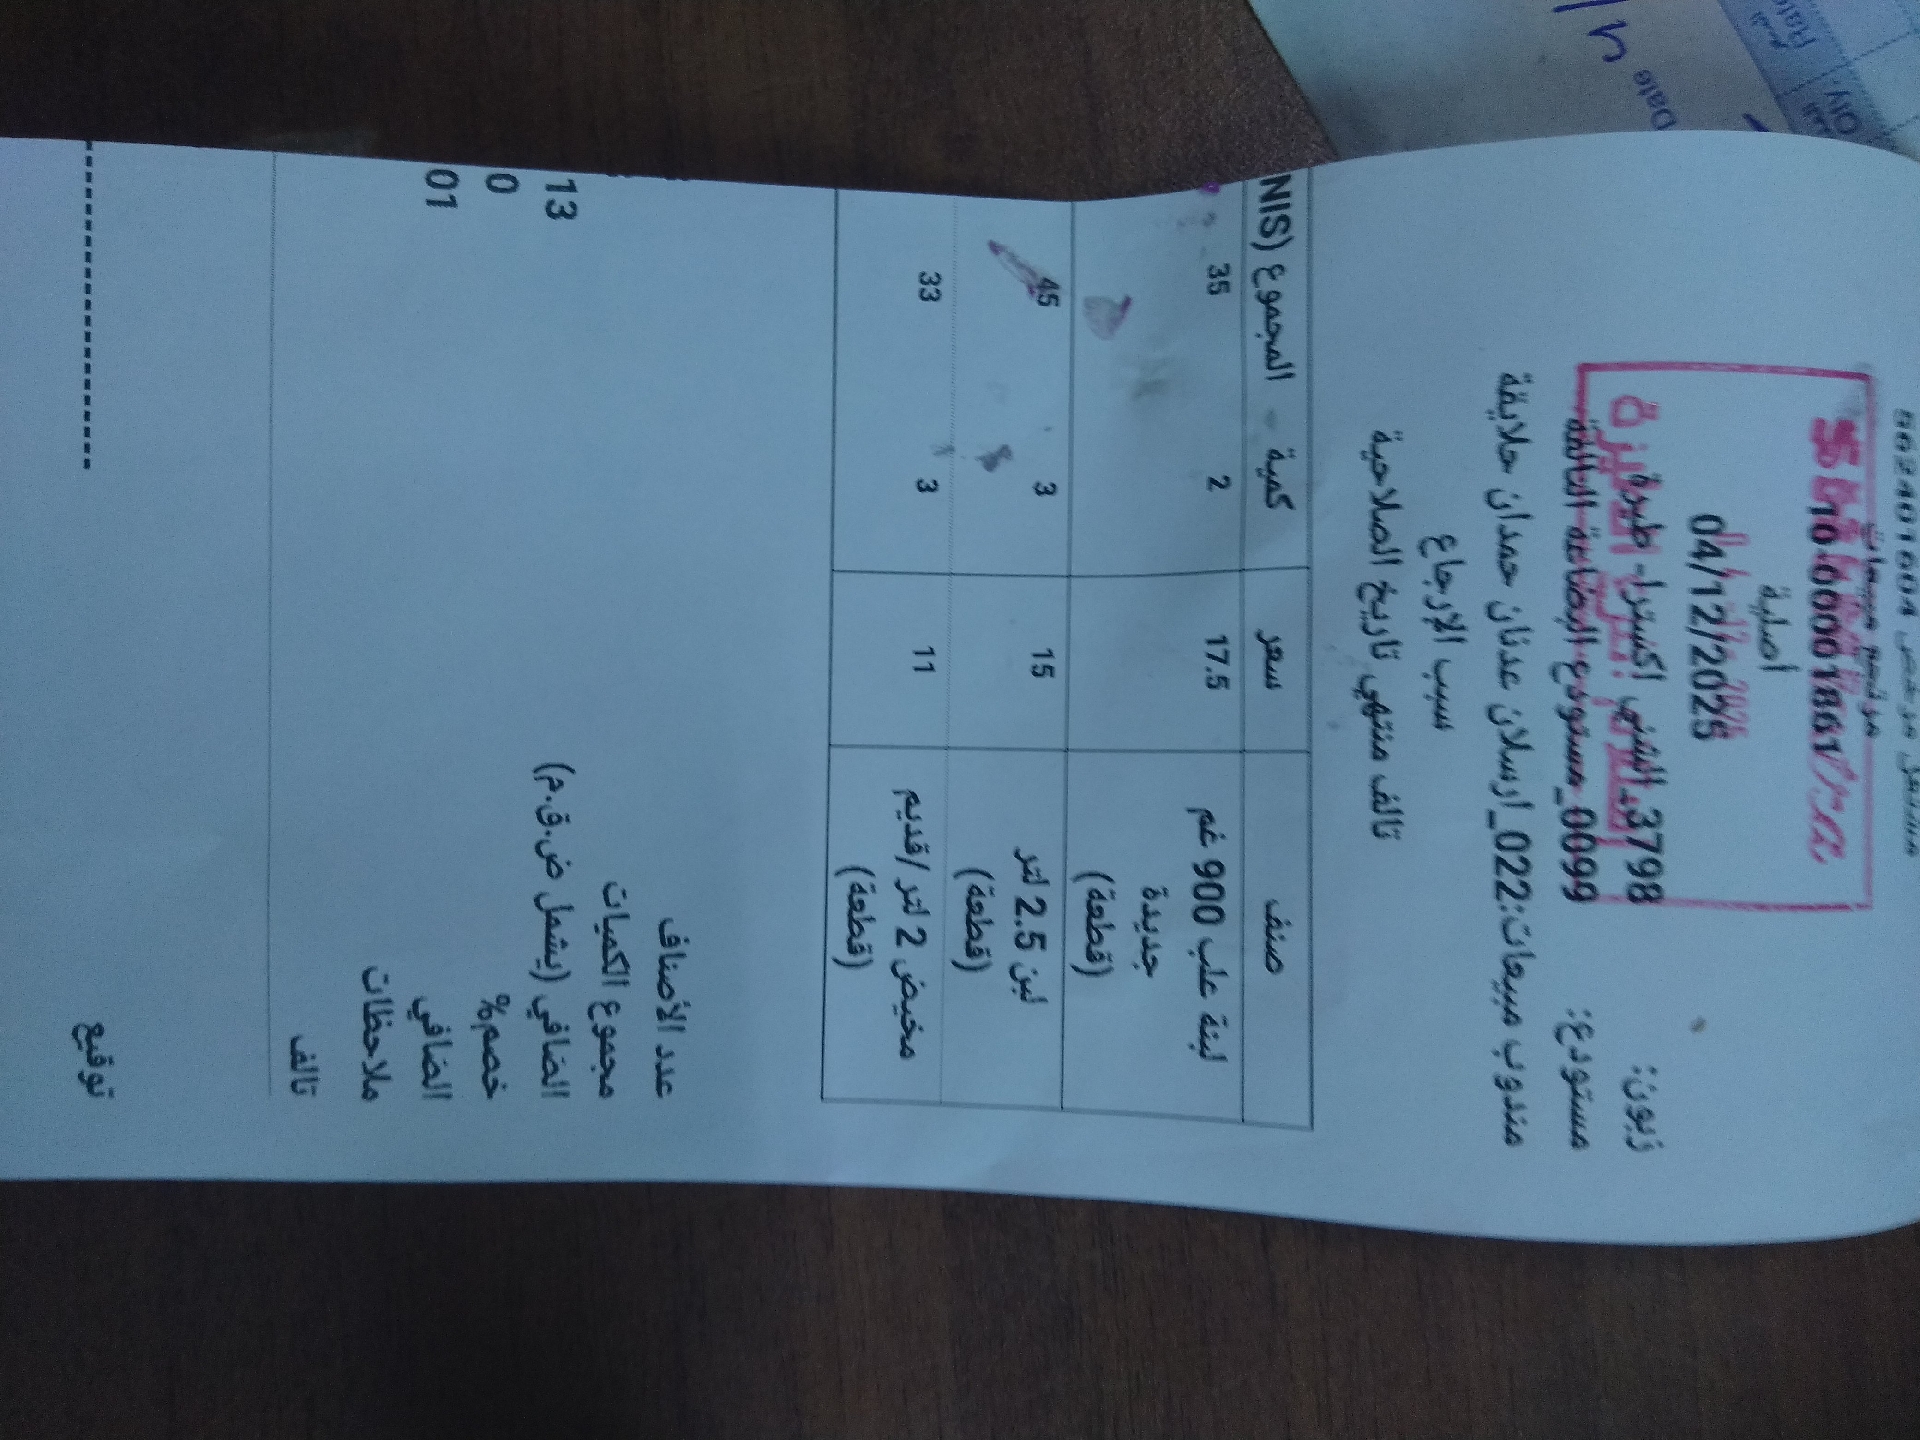 مشتغل مرخص 562401604
مرتجع مبيعات
اصلية
04/12/2025
زبون: 3798_الشني اكسترا- طيرة
مستودع: 0099_مستودع البضاعة التالفة
مندوب مبيعات:022_ارسلان عدنان حمدان حلايقة
سبب الإرجاع
تالف منتهي تاريخ الصلاحية
صنف سعر كمية المجموع (NIS
لبنة علب 900 غم 17.5 2 35
جديدة
(قطعة)
لبن 2.5 لتر 15 3 45
(قطعة)
مخيض 2 لتر /قديم 11 3 33
(قطعة)
عدد الأصناف
مجموع الكميات
الضافي (يشمل ض.ق.م) 13
خصم% 0
الضافي 01
ملاحظات
تالف
توقيع
Date
Qty